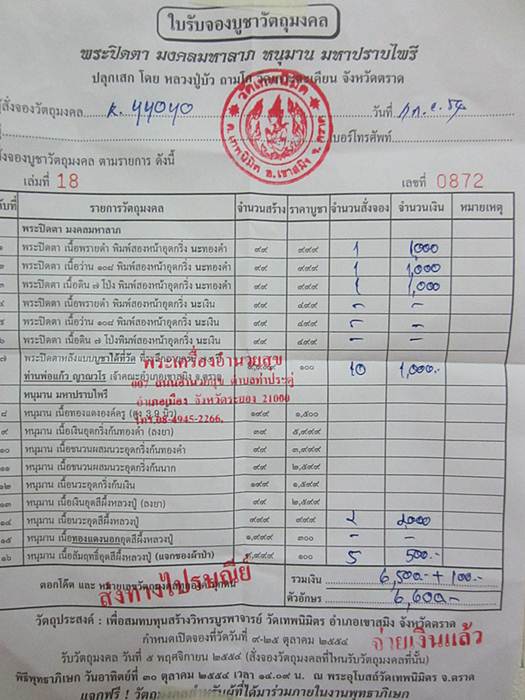 ใบรับจองบูชาวัตถุมงคล
พระปิดตา มงคลมหาลาภ หนุมาน มหาปราบไพรี
ปลุกเสก โดย หลวงปู่บัว ถามโก จังหวัดตราด
วัดเทพนิมิต
ต.เทพนิมิต อ.เขาสมิง จ.ตราด
สั่งจองวัตถุมงคล K. yyoyo วันที่
เบอร์โทรศัพท์
จองบูชาวัตถุมงคล ตามรายการ ดังนี้
เล่มที่ 18 เลขที่ 0872
รายการวัตถุมงคล จำนวนสร้าง ราคาบูชา จำนวนสั่งจอง จำนวนเงิน หมายเหตุ
พระปิดตา มงคลมหาลาภ
๑ พระปิดตา เนื้อพรายดำ พิมพ์สองหน้าอุดกริ่ง นะทองคำ ๙๙ ๙๙๙ 1 1,000
๒ พระปิดตา เนื้อว่าน ๑๐๘ พิมพ์สองหน้าอุดกริ่ง นะทองคำ ๙๙ ๙๙๙ 1 1,000
๓ พระปิดตา เนื้อดิน ๗ โป่ง พิมพ์สองหน้าอุดกริ่ง นะทองคำ ๙๙ ๙๙๙ 1 1,000
๔ พระปิดตา เนื้อพรายดำ พิมพ์สองหน้าอุดกริ่ง นะเงิน ๙๙ - -
๕ พระปิดตา เนื้อว่าน ๑๐๘ พิมพ์สองหน้าอุดกริ่ง นะเงิน ๙๙ - -
๖ พระปิดตา เนื้อดิน ๗ โป่งพิมพ์สองหน้าอุดกริ่ง นะเงิน ๙๙ - -
๗ พระปิดตาหลังแบบบูชาได้ที่วัด
ท่านพ่อแก้ว ญาณวโร เจ้าคณะอำเภอเขาสมิง จ.ตราด ๑๐๐ 10 1,000.-
พระเครื่องอำนวยสุข
ถนนอำนวยสุข ตำบลท่าประดู่
อำเภอเมือง จังหวัดระยอง 21000
โทร.08-4945-2266
หนุมาน มหาปราบไพรี
๘ หนุมาน เนื้อทองแดงองค์ครู (สูง 3.9 นิ้ว) ๑๙๙ ๑,๕๐๐
๙ หนุมาน เนื้อเงินอุดกริ่งก้นทองคำ (ลงยา) ๓๙ ๕,๙๙๙
๑๐ หนุมาน เนื้อชนวนผสมนวะอุดกริ่งก้นทองคำ ๙๙ ๓,๙๙๙
๑๑ หนุมาน เนื้อชนวนผสมนวะอุดกริ่งก้นนาก ๙๙ ๒,๕๙๙
๑๒ หนุมาน เนื้อนวะอุดกริ่งก้นเงิน ๑๙๙ ๑,๕๙๙
๑๓ หนุมาน เนื้อเงินอุดสีผึ้งหลวงปู่ (ลงยา) ๙๙ ๒,๕๙๙
๑๔ หนุมาน เนื้อนวะอุดสีผึ้งหลวงปู่ ๙๙๙ ๙๙๙ 2 2000
๑๕ หนุมาน เนื้อทองแดงนอกอุดสีผึ้งหลวงปู่ ๑,๙๙๙ ๓๐๐ - -
๑๖ หนุมาน เนื้อสัมฤทธิ์อุดสีผึ้งหลวงปู่ (แจกจองผ้าป่า) ๙,๙๙๙ ๑๐๐ 5 500.-
ตอกโค๊ต และ หมายเลขวัตถุมงคล รวมเงิน 6,500.- + 100.-
ส่งทางไปรษณีย์ ตัวอักษร 6,600.-
วัตถุประสงค์ : เพื่อสมทบทุนสร้างวิหารบูรพาจารย์ วัดเทพนิมิตร อำเภอเขาสมิง จังหวัดตราด
กำหนดเปิดจองที่วัดวันที่ ๙-๒๕ ตุลาคม ๒๕๕๔ จ่ายเงินแล้ว
รับวัตถุมงคล วันที่ ๕ พฤศจิกายน ๒๕๕๔ (สั่งจองวัตถุมงคลที่ไหนรับวัตถุมงคลที่นั้น)
พิธีพุทธาภิเษก วันอาทิตย์ที่ ๓๐ ตุลาคม ๒๕๕๔ เวลา ๑๔.๐๙ น. ณ พระอุโบสถ์วัดเทพนิมิตร จ.ตราด
แจกฟรี ! วัตถุมงคลสำหรับผู้ที่ได้มาร่วมภายในงานพุทธาภิเษก